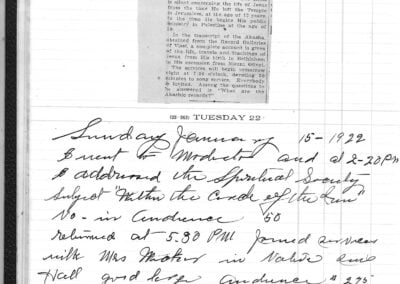 is silent concerning the life of Jesus
from the time He left the Temple
in Jerusalem, at the age of 12 years
to the time He begins His public
ministry in Palestine at the age of
In the transcript of the Akasha
obtained from the Record Galleries
of Visel, a complete account is given
of the life, travels and teachings of
Jesus from His birth in Bethlehem
to His ascension from Mount Olivet.
The services will begin tomorrow
night at 7:30 o'clock, devoting 30
minutes to song service. Everybody
is invited. Among the questions to
be answered is "What are the
Akashic records?"
TUESDAY 22
Sunday January 15-1922
I went to Modesto and at 2-20 PM
I addressed the Spiritual Society
subject "Within the Circle of the Sun"
No- in audience 50
returned at 5.30 PM Joined services
with Mrs in Native Sons
Hall good large audience $ 275